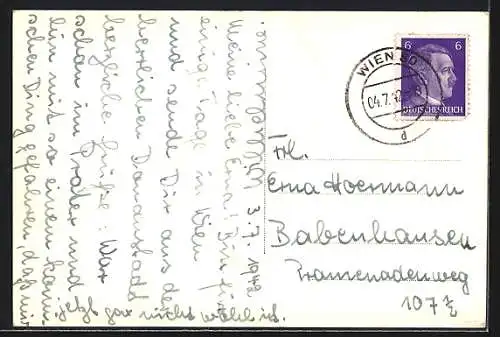 Wien 3.7.1942
Meine liebe Erna! Bin für
einige Tage in Wien
und sende Dir aus der
herrlichen Donaustadt
herzliche Grüße. War
schon im Prater und
bin mit so einem komi-
schen Ding gefahren, daß mir
jetzt gar nicht wohl ist.
6 6
DEUTSCHES REICH
WIEN
04.7.42
d
Frl.
Erna Hoermann
Babenhausen
Promenadenweg
107 ½